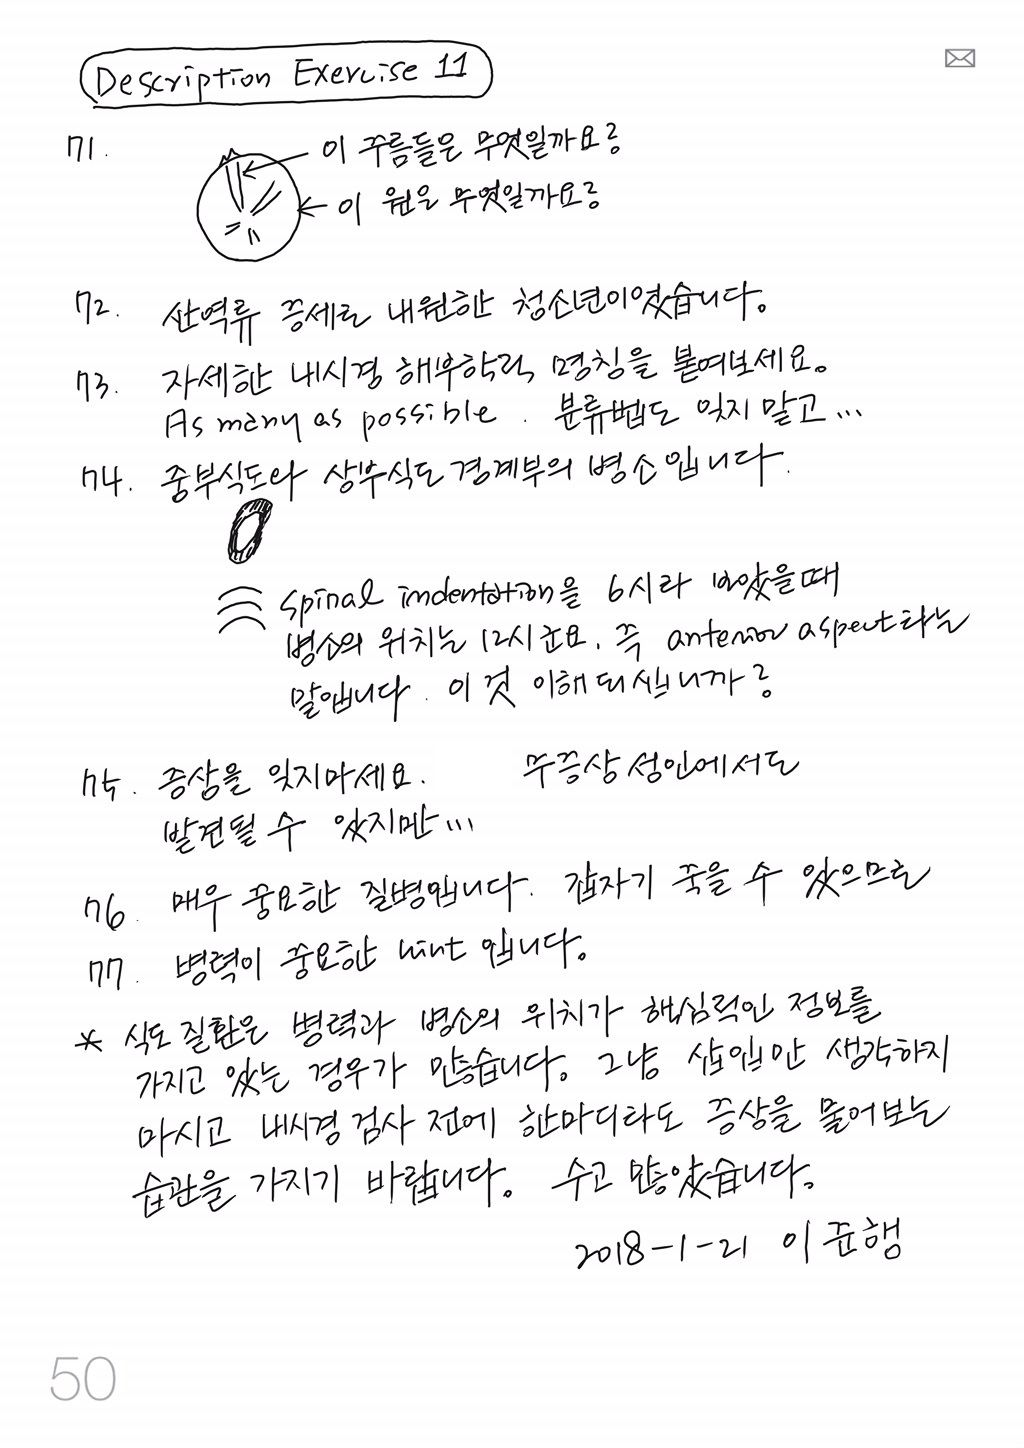 Description Exercise 11
71. 이 주름들은 무엇일까요?
이 원은 무엇일까요?
72. 산역류 증세로 내원한 청소년이었습니다.
73. 자세한 내시경 해부학적 명칭을 붙여보세요.
As many as possible. 분류법도 잊지 말고...
74. 중부식도와 상부식도 경계부의 병소입니다.
Spinal indentation을 6시라 보았을때
병소의 위치는 12시군요. 즉 anterior aspect라는
말입니다. 이것 이해되십니까?
75. 증상을 잊지마세요. 무증상 성인에서도
발견될 수 있지만...
76. 매우 중요한 질병입니다. 갑자기 죽을 수 있으므로
77. 병력이 중요한 hint 입니다.
* 식도 질환은 병력과 병소의 위치가 핵심적인 정보를
가지고 있는 경우가 많습니다. 그냥 삽입만 생각하지
마시고 내시경 검사 전에 한마디라도 증상을 물어보는
습관을 가지기 바랍니다. 수고 많았습니다.
2018-1-21 이준행
50